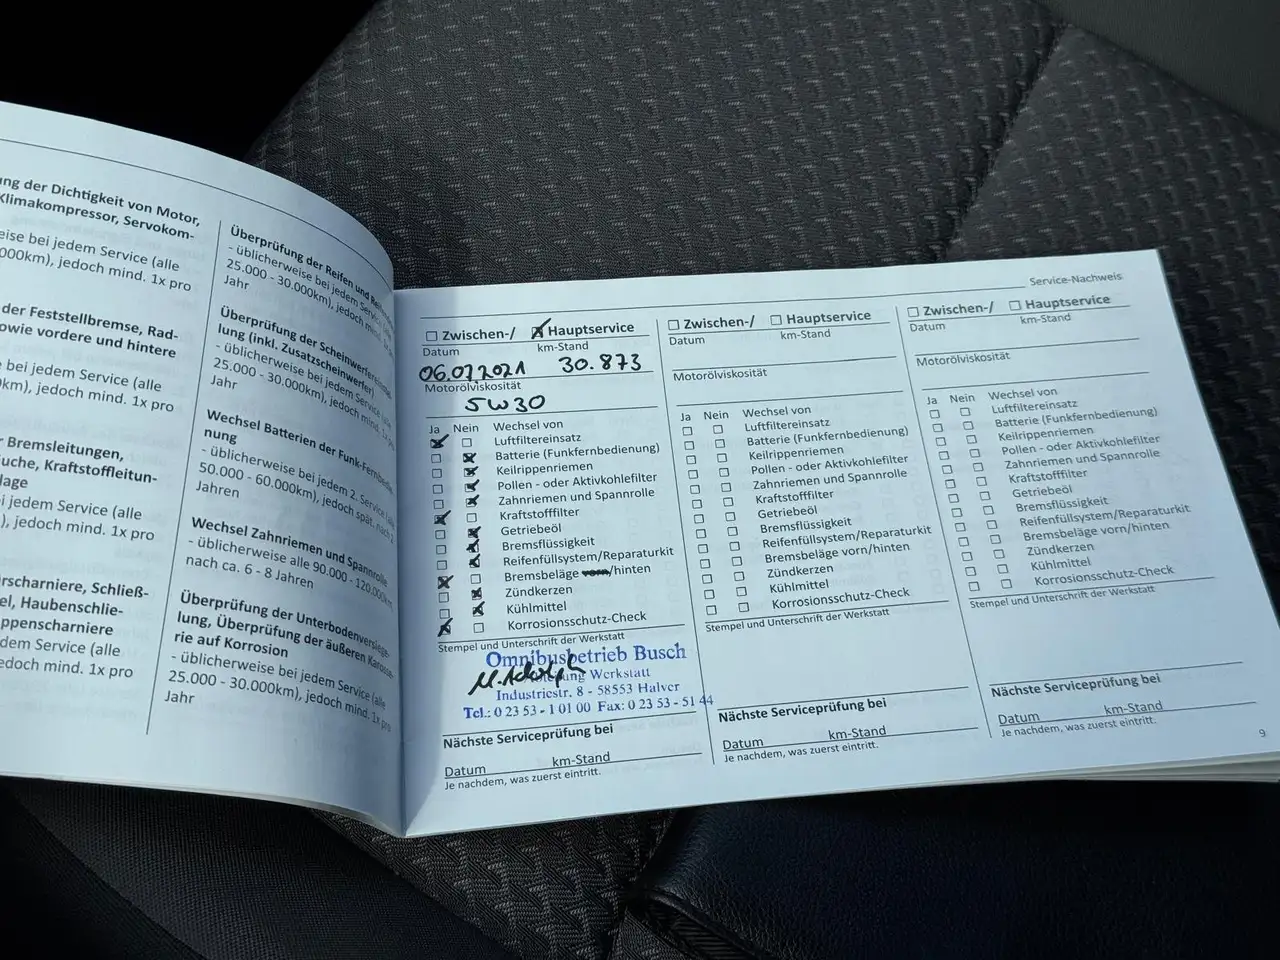 ung der Dichtigkeit von Motor,
Klimakompressor, Servokom-
eise bei jedem Service (alle
000km), jedoch mind. 1x pro
der Feststellbremse, Rad-
owie vordere und hintere
bei jedem Service (alle
km), jedoch mind. 1x pro
r Bremsleitungen,
uche, Kraftstoffleitun-
lage
i jedem Service (alle
), jedoch mind. 1x pro
rscharniere, Schließ-
el, Haubenschlie-
ppenscharniere
dem Service (alle
edoch mind. 1x pro
Überprüfung der Reifen und
- üblicherweise bei jedem Service
25.000 - 30.000km), jedoch mind.
Jahr
Überprüfung der Scheinwerfereinstel-
lung (inkl. Zusatzscheinwerfer)
- üblicherweise bei jedem Service (alle
25.000 - 30.000km), jedoch mind. 1x pro
Jahr
Wechsel Batterien der Funk-Fernbedie-
nung
- üblicherweise bei jedem 2. Service (alle
50.000 - 60.000km), jedoch spät. nach 2
Jahren
Wechsel Zahnriemen und Spannrolle
- üblicherweise alle 90.000 - 120.000km
nach ca. 6 - 8 Jahren
Überprüfung der Unterbodenversiege-
lung, Überprüfung der äußeren Karosse-
rie auf Korrosion
- üblicherweise bei jedem Service (alle
25.000 - 30.000km), jedoch mind. 1x pro
Jahr
Service-Nachweis
Zwischen-/ Hauptservice
Datum km-Stand
06.07.2021 30.873
Motorölviskosität
5W30
Ja Nein Wechsel von
Luftfiltereinsatz
Batterie (Funkfernbedienung)
Keilrippenriemen
Pollen - oder Aktivkohlefilter
Zahnriemen und Spannrolle
Kraftstofffilter
Getriebeöl
Bremsflüssigkeit
Reifenfüllsystem/Reparaturkit
Bremsbeläge vorn/hinten
Zündkerzen
Kühlmittel
Korrosionsschutz-Check
Stempel und Unterschrift der Werkstatt
Omnibusbetrieb Busch
M. Adolph
Abteilung Werkstatt
Industriestr. 8 - 58553 Halver
Tel.: 0 23 53 - 1 01 00 Fax: 0 23 53 - 51 44
Nächste Serviceprüfung bei
Datum km-Stand
Je nachdem, was zuerst eintritt.
Zwischen-/ Hauptservice
Datum km-Stand
Motorölviskosität
Ja Nein Wechsel von
Luftfiltereinsatz
Batterie (Funkfernbedienung)
Keilrippenriemen
Pollen - oder Aktivkohlefilter
Zahnriemen und Spannrolle
Kraftstofffilter
Getriebeöl
Bremsflüssigkeit
Reifenfüllsystem/Reparaturkit
Bremsbeläge vorn/hinten
Zündkerzen
Kühlmittel
Korrosionsschutz-Check
Stempel und Unterschrift der Werkstatt
Nächste Serviceprüfung bei
Datum km-Stand
Je nachdem, was zuerst eintritt.
Zwischen-/ Hauptservice
Datum km-Stand
Motorölviskosität
Ja Nein Wechsel von
Luftfiltereinsatz
Batterie (Funkfernbedienung)
Keilrippenriemen
Pollen - oder Aktivkohlefilter
Zahnriemen und Spannrolle
Kraftstofffilter
Getriebeöl
Bremsflüssigkeit
Reifenfüllsystem/Reparaturkit
Bremsbeläge vorn/hinten
Zündkerzen
Kühlmittel
Korrosionsschutz-Check
Stempel und Unterschrift der Werkstatt
Nächste Serviceprüfung bei
Datum km-Stand
Je nachdem, was zuerst eintritt.
9